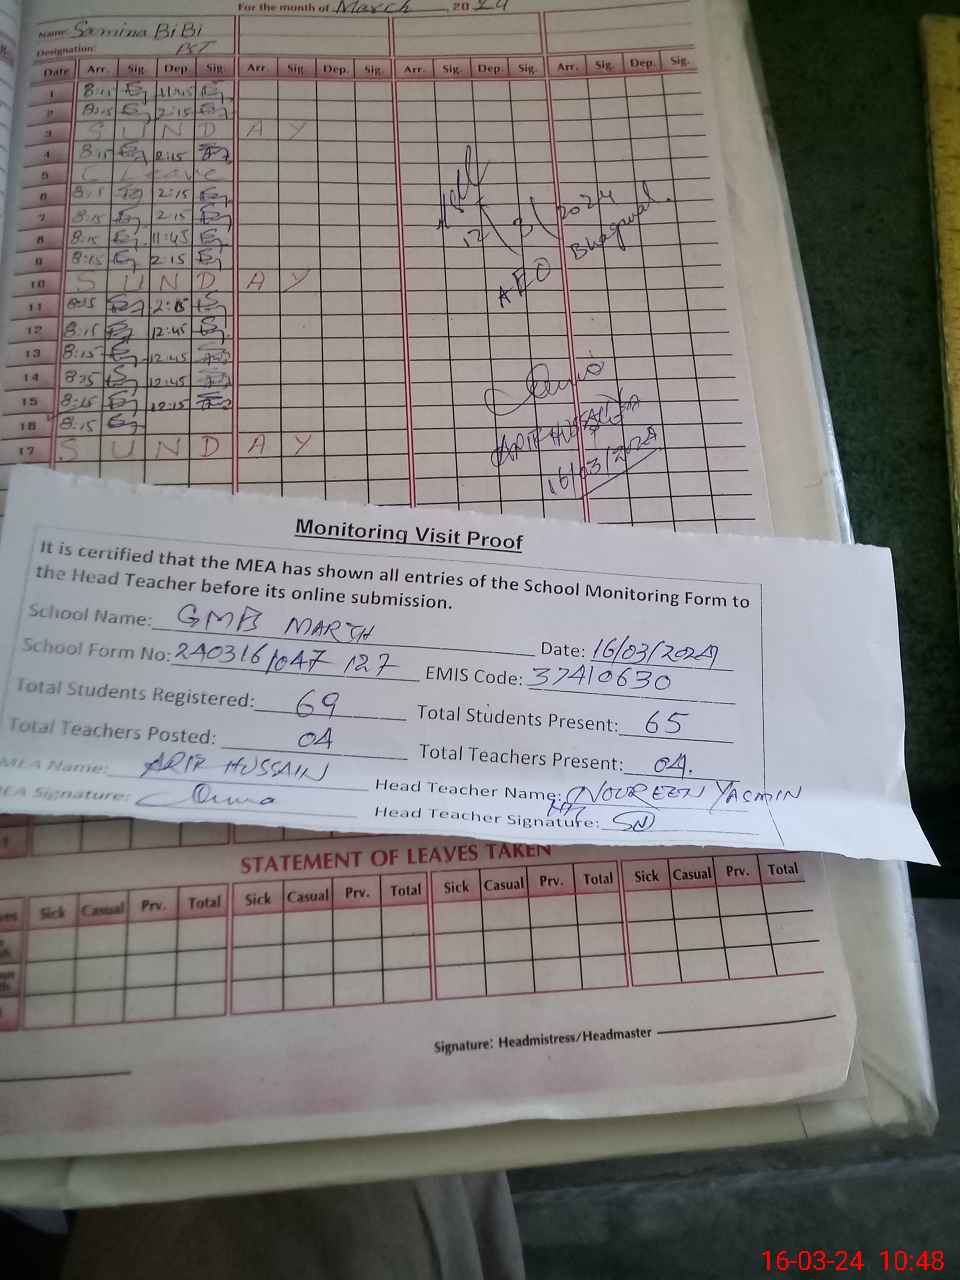 For the month of March 2024
Name: Samina BiBi
Designation: PST
Date Arr. Sig. Dep. Sig. Arr. Sig. Dep. Sig. Arr. Sig. Dep. Sig. Arr. Sig. Dep. Sig.
1 8:15 11:45
2 8:15 2:15
3 S U N D A Y
4 8:15 2:15
5 C Leave
6 8:15 2:15
7 8:15 2:15
8 8:15 11:45
9 8:15 2:15
10 S U N D A Y
11 8:15 2:15
12 8:15 12:45
13 8:15 12:45
14 8:15 12:45
15 8:15 12:15
16 8:15
17 S U N D A Y
12/3/2024
AEO Bhagwal.
ARIF HUSSAIN
16/03/2024
Monitoring Visit Proof
It is certified that the MEA has shown all entries of the School Monitoring Form to
the Head Teacher before its online submission.
School Name: GMB MARTH Date: 16/03/2024
School Form No: 240316 1047 127 EMIS Code: 37410630
Total Students Registered: 69 Total Students Present: 65
Total Teachers Posted: 04 Total Teachers Present: 04.
MEA Name: ARIF HUSSAIN Head Teacher Name: NOUREEN YASMIN
MEA Signature: Head Teacher Signature:
STATEMENT OF LEAVES TAKEN
Sick Casual Prv. Total Sick Casual Prv. Total Sick Casual Prv. Total Sick Casual Prv. Total
Signature: Headmistress/Headmaster
16-03-24 10:48